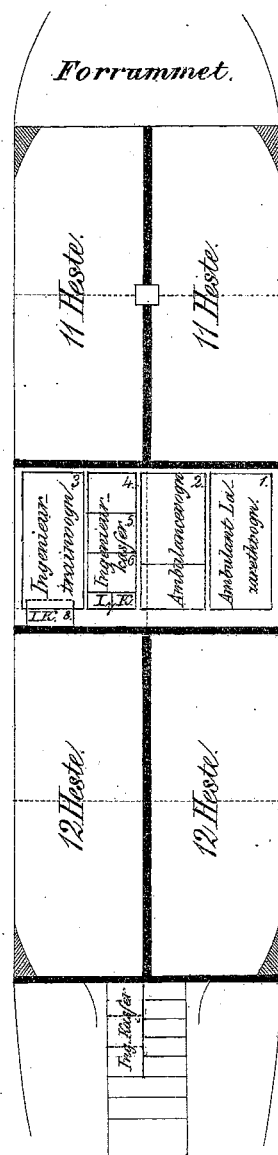 Forrummet.
11 Heste.
11 Heste.
3.
Ingenieur-
trainvogn
I.K. 8.
4.
Ingenieur-
kasser
5.
6.
I. K.
2.
Ambulancevogn
1.
Ambulant La-
zarethvogn.
12 Heste.
12 Heste.
Ing. Kasser